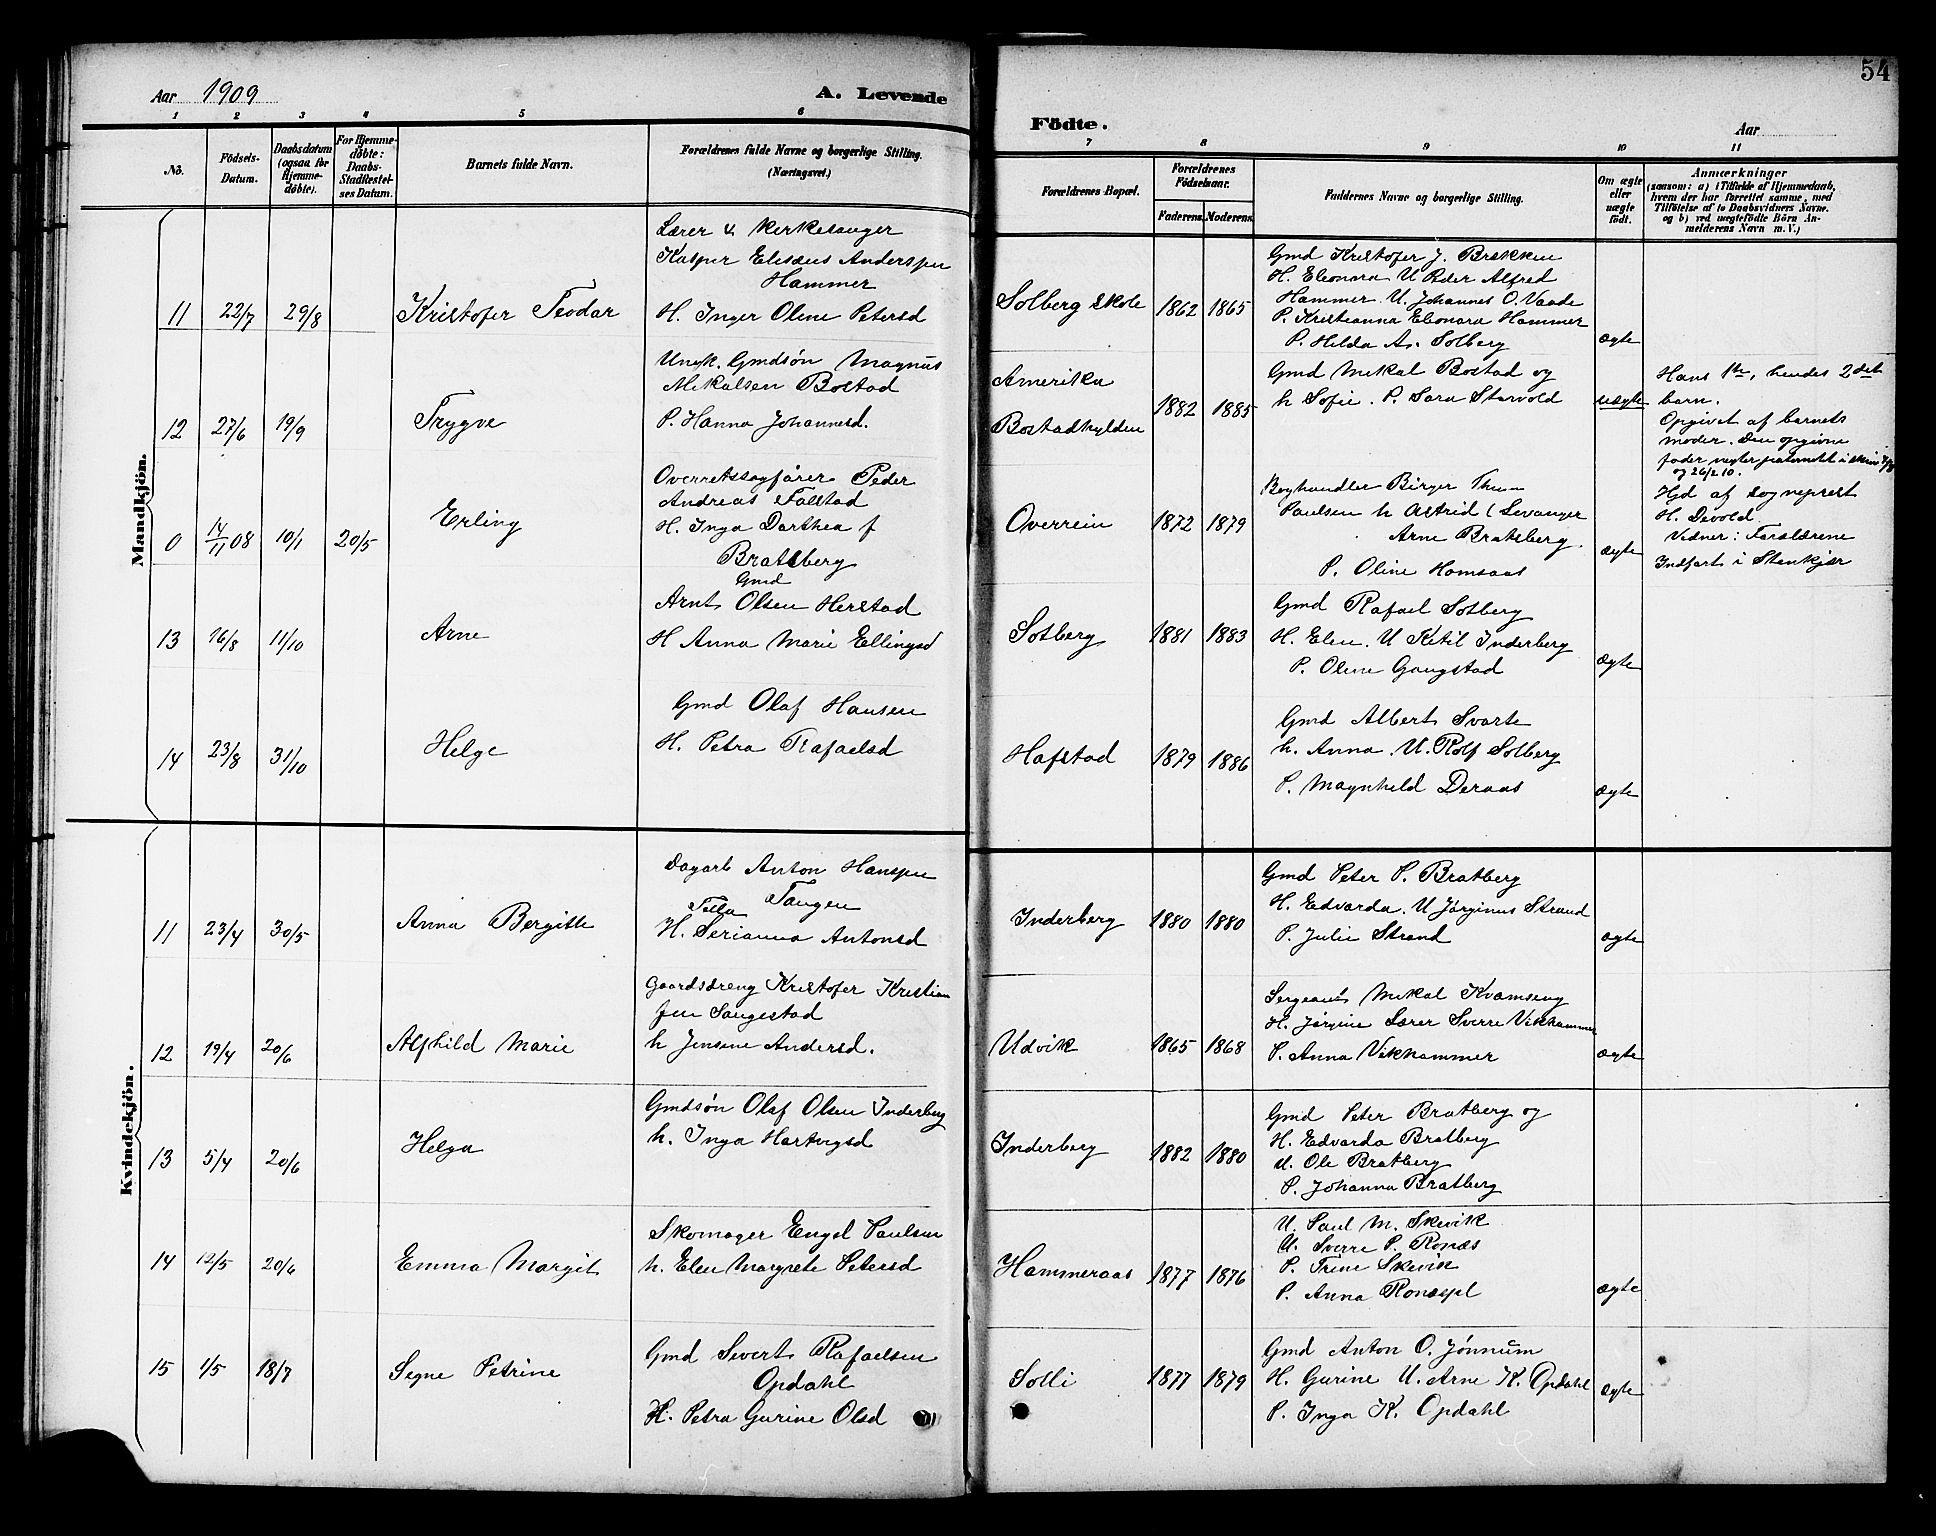 54
Aar 1909
A. Levende
Födte.
Aar
1 2 3 4 5 6
7 8 9 10 11
No.
Födsels-
Datum.
Daabsdatum
(ogsaa for
Hjemme-
döbte).
For Hjemme-
döbte:
Daabs-
Stadfæstel-
ses Datum.
Barnets fulde Navn.
Forældrenes fulde Navne og borgerlige Stilling.
(Næringsvei.)
Forældrenes Bopæl.
Forældrenes
Födselsaar.
Faderens. Moderens.
Faddernes Navne og borgerlige Stilling.
Om ægte
eller
uægte
födt.
Anmærkninger
(saasom: a) i Tilfælde af Hjemmedaab,
hvem der har forrettet samme, med
Tilföielse af to Daabsvidners Navne.
og b) ved uægtefödte Börn An-
melderens Navn m. V.)
Mandkjön.
11 22/7 29/8 Kristofer Teodor
Lærer & kirkesanger
Kasper Elisæus Anderssen
Hammer
H. Inger Oline Petersd
Solberg skole 1862 1865
Gmd Kristofer J. Brekken
H. Eleonora U Peder Alfred
Hammer. U. Johannes O. Vaade
P. Kristianna Eleonora Hammer
P. Hilda A. Solberg
ægte
12 27/6 19/9 Trygve
Ungk. Gmdsøn Magnus
Mikalsen Bostad
P. Hanna Johannesd.
Amerika
Bostadhylden
1882 1885
Gmd Mikal Bostad og
h Sofie. P. Sara Starvold
uægte
Hans 1ste, hendes 2det
barn.
Opgivet af barnets
moder. Den opgivne
fader negter paternitet i skriv
og 26/2 10.
0 14/11 08 10/1 20/5 Erling
Overretssagfører Peder
Andreas Falstad
H. Inga Dorthea f
Bratsberg
Overrein 1872 1879
Boghandler Birger Thun
Paulsen h Astrid (Levanger
Arne Bratsberg.
P. Oline Homsaas
ægte
Hjd af sogneprest
H. Devold.
Vidner: Forældrene
Indført i Stenkjær
13 16/8 11/10 Arne
Gmd
Arnt Olsen Herstad
H Anna Marie Ellingsd
Solberg 1881 1883
Gmd Rafael Solberg
H. Elen. U Ketil Inderberg
P. Oline Gangstad
ægte
14 23/8 31/10 Helge
Gmd Olaf Hansen
H. Petra Rafaelsd
Hafstad 1879 1886
Gmd Albert Svarte
h. Anna. U. Rolf Solberg
P. Magnhild Deraas
ægte
Kvindekjön.
11 23/4 30/5 Anna Bergitte
Dagarb Anton Hanssen
Tangen
H. Serianna Antonsd
Inderberg 1880 1880
Gmd Peter P. Bratberg
H. Edvarda. U Jørginus Strand
P. Julie Strand
ægte
12 19/4 20/6 Alfhild Marie
Gaardsdreng Kristofer Kristian
sen Saugestad
h Jensine Andersd.
Udvik 1865 1868
Sergeant Mikal Kvamseng
H. Jørgine Lærer Sverre Vikhammer
P. Anna Vikhammer
ægte
13 5/4 20/6 Helga
Gmdsøn Olaf Olsen Inderberg
h. Inga Hartvigsd
Inderberg 1882 1880
Gmd Peter Bratberg og
H. Edvarda Bratberg
U. Ole Bratberg
P. Johanna Bratberg
14 12/5 20/6 Emma Margit
Skomager Engel Paulsen
h. Elen Margrete Petersd
Hammeraas 1877 1876
U. Paul M. Skevik
U. Sverre P. Ronæs
P. Trine Skevik
P. Anna Ronæspl
ægte
15 1/5 18/7 Segne Petrine
Gmd Sivert Rafaelsen
Opdahl
H. Petra Gurine Olsd
Solli 1877 1879
Gmd Anton O. Jønnum
H. Gurine U. Arne K. Opdahl
P. Inga K. Opdahl
ægte